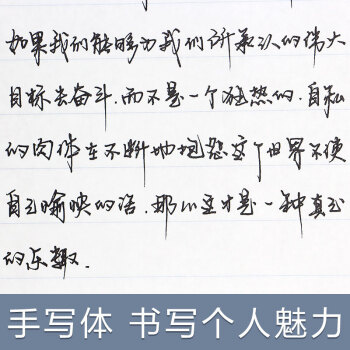 如果我们能够为我们所承认的伟大
目标去奋斗.而不是一个狂热的.自私
的肉体在不断地抱怨这个世界不使
自己愉快的话.那以这才是一种真正
的乐趣.
手写体 书写个人魅力